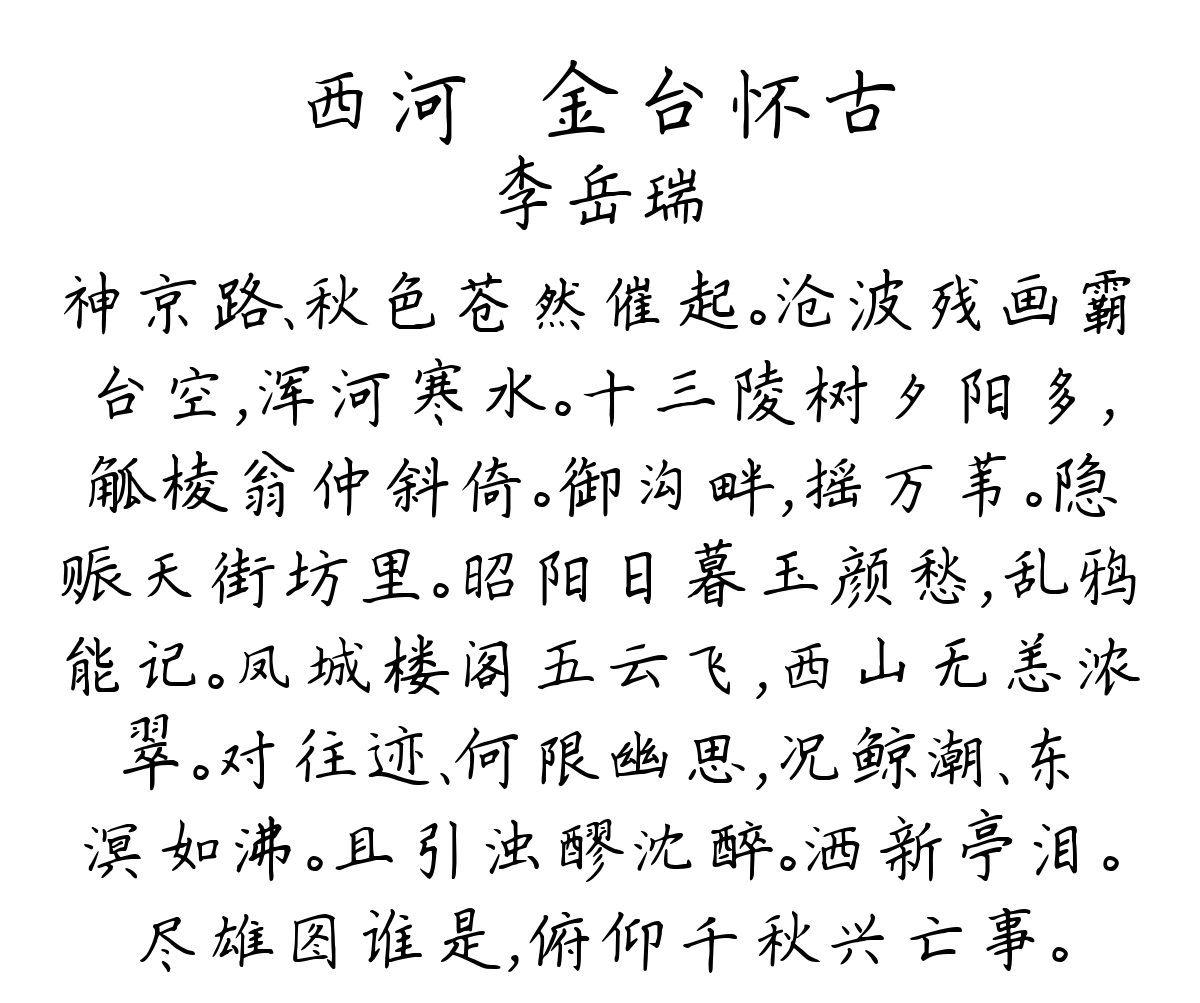 西河 金台怀古
李岳瑞
神京路、秋色苍然催起。沧波残画霸
台空,浑河寒水。十三陵树夕阳多,
觚棱翁仲斜倚。御沟畔,摇万苇。隐
赈天街坊里。昭阳日暮玉颜愁,乱鸦
能记。凤城楼阁五云飞,西山无恙浓
翠。对往迹、何限幽思,况鲸潮、东
溟如沸。且引浊醪沈醉。洒新亭泪。
尽雄图谁是,俯仰千秋兴亡事。